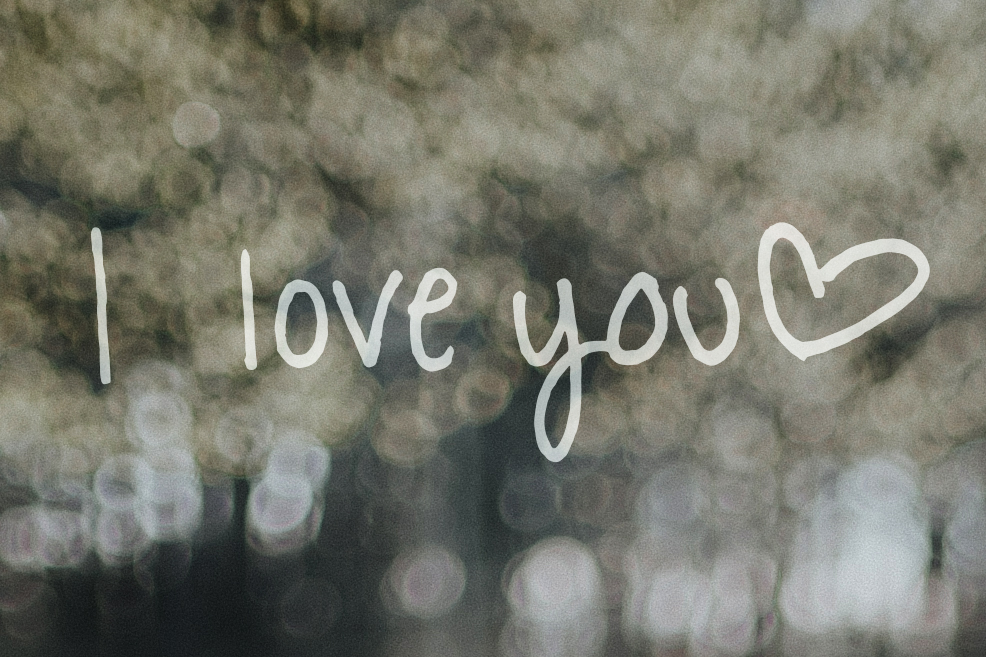 I love you♡